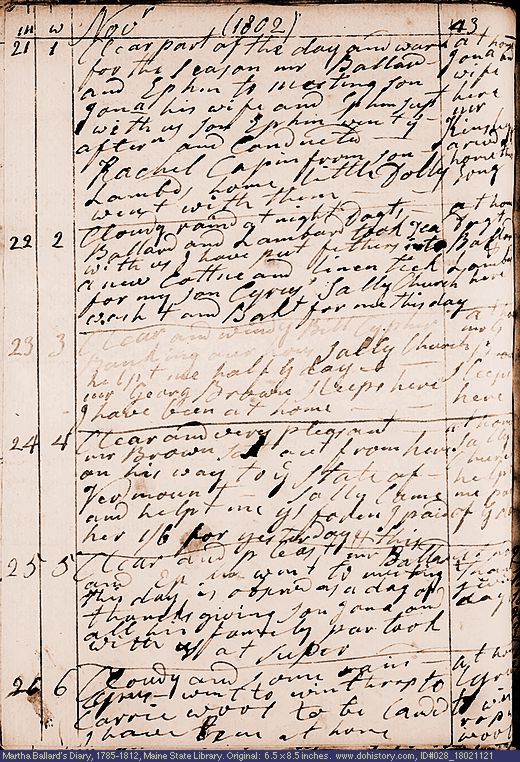 m w Novr (1802) 43
21 1 Clear part of the day and warm at home
for the Season mr Ballard Jona and
and Ephm to meeting son wife
Jona his wife and Ephm supt here
with us son Ephm went ys mr
aftern and Conducted Kinsly
Rachel Capin from son arivd
Lambds home little Dolly home this
went with them
22 2 Cloudy raind at night Dagts at home
Ballard and Lambard took Tea Dagts
with us I have put fethers into Ballard
a new Cottne and linen tick Lambd
for my son Cyrus Sally Church here
washt and Bakt for me this day
23 3 Clear and windy Bill Cypher at home
Banking our Sally Church
helpt me half ye day
mr Georg Brown sleeps here sleeps
I have been at home here
24 4 Clear and very pleasant at home
mr Brown sett out from here Sally
on his way to ye State of Church
Vermount Sally Came helpt
and helpt me ys foren I paid me part
her 1/6 for yesterday & this of ye
25 5 Clear and pleast mr Ballard
and Ephm went to meeting thanks
this day is opined as a day of giving
thanksgiving son Jona and day
all his family partook
with us at super
26 6 Cloudy and some rain at home
Cyrus went to winthrop to Cyrus
Carrie wool to be Cardd
I have Been at home wool
Martha Ballard's Diary, 1785-1812, Maine State Library. Original: 6.5 x 8.5 inches. www.dohistory.com, ID#028_18021121